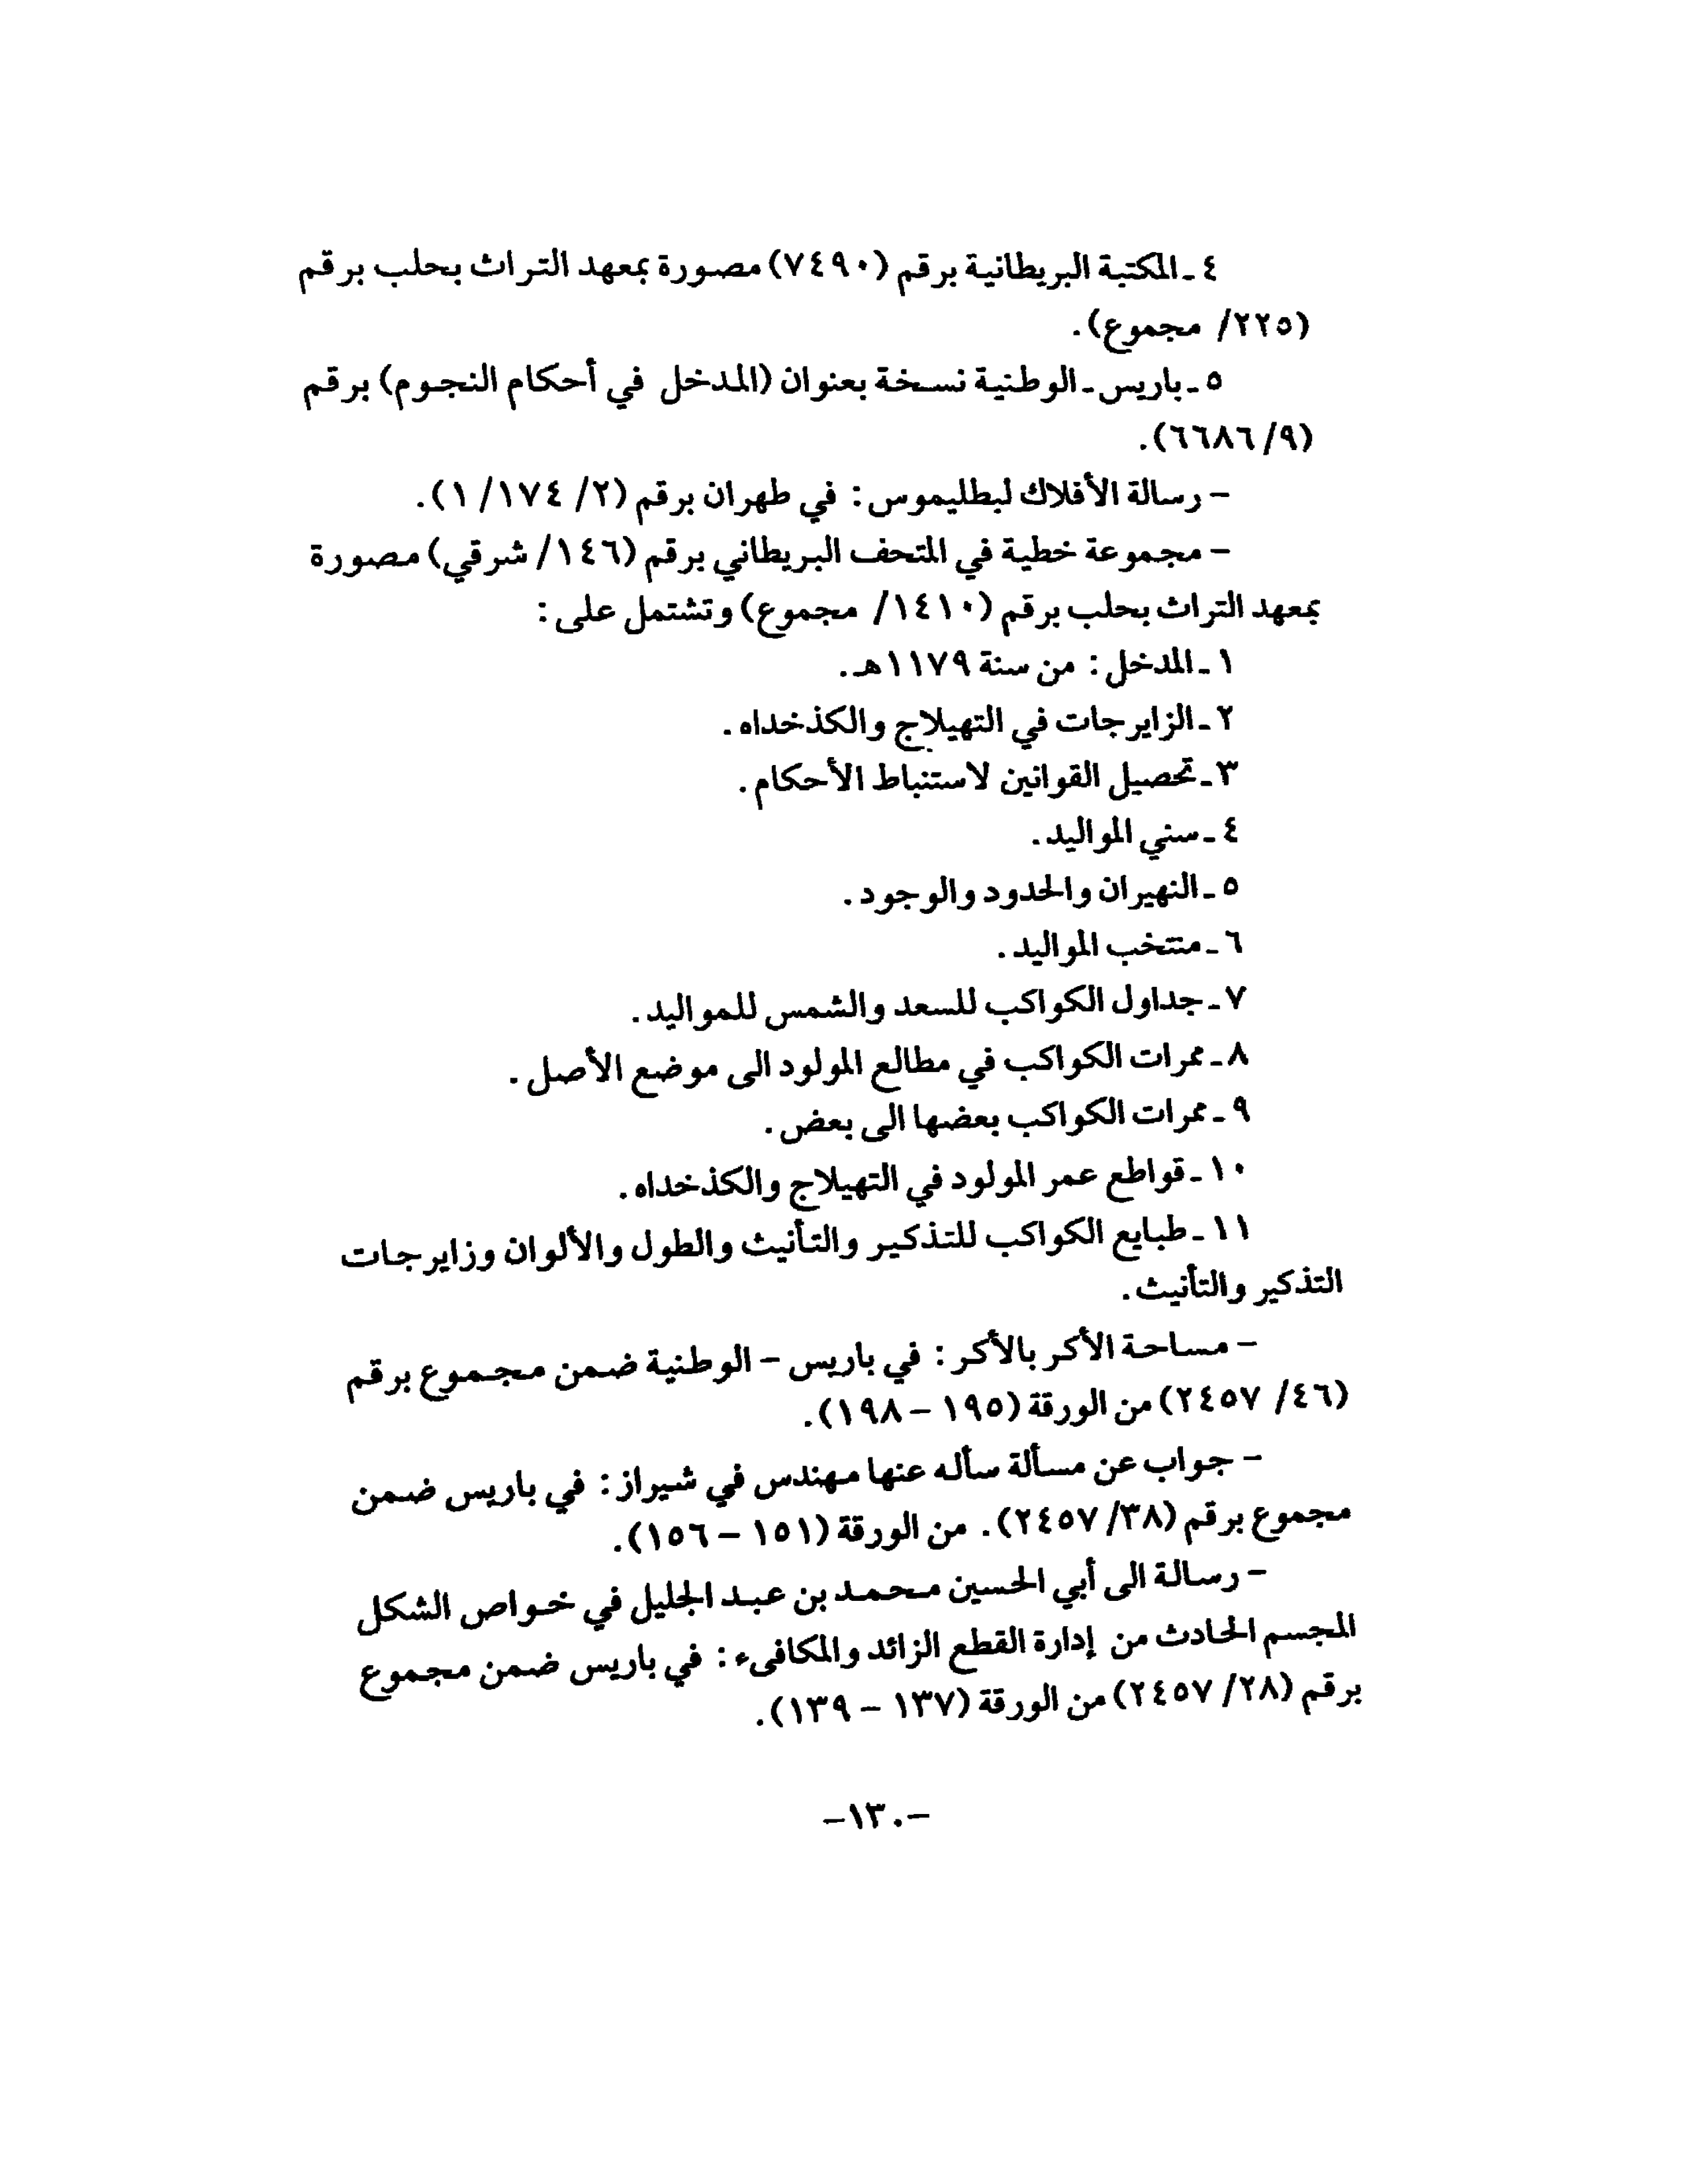 ٤ ـ المكتبة البريطانية برقم (٧٤٩٠) مصورة بمعهد التراث بحلب برقم
(٢٢٥/ مجموع).
٥ ـ باريس ـ الوطنية نسخة بعنوان (المدخل في أحكام النجوم) برقم
(٩/ ٦٦٨٦).
– رسالة الأفلاك لبطليموس: في طهران برقم (٢/ ١٧٤/ ١).
– مجموعة خطية في المتحف البريطاني برقم (١٤٦/ شرقي) مصورة
بمعهد التراث بحلب برقم (١٤١٠/ مجموع) وتشتمل على:
١ ـ المدخل: من سنة ١١٧٩هـ.
٢ ـ الزايرجات في التهيلاج والكذخداه.
٣ ـ تحصيل القوانين لاستنباط الأحكام.
٤ ـ سني المواليد.
٥ ـ النهيران والحدود والوجود.
٦ ـ منتخب المواليد.
٧ ـ جداول الكواكب للسعد والشمس للمواليد.
٨ ـ ممرات الكواكب في مطالع المولود الى موضع الأصل.
٩ ـ ممرات الكواكب بعضها الى بعض.
١٠ ـ قواطع عمر المولود في التهيلاج والكذخداه.
١١ ـ طبايع الكواكب للتذكير والتأنيث والطول والألوان وزايرجات
التذكير والتأنيث.
– مساحة الأكر بالأكر: في باريس – الوطنية ضمن مجموع برقم
(٤٦/ ٢٤٥٧) من الورقة (١٩٥ – ١٩٨).
– جواب عن مسألة سأله عنها مهندس في شيراز: في باريس ضمن
مجموع برقم (٣٨/ ٢٤٥٧). من الورقة (١٥١ – ١٥٦).
– رسالة الى أبي الحسين محمد بن عبد الجليل في خواص الشكل
المجسم الحادث من إدارة القطع الزائد والمكافىء: في باريس ضمن مجموع
برقم (٢٨/ ٢٤٥٧) من الورقة (١٣٧ – ١٣٩).
–١٣٠–